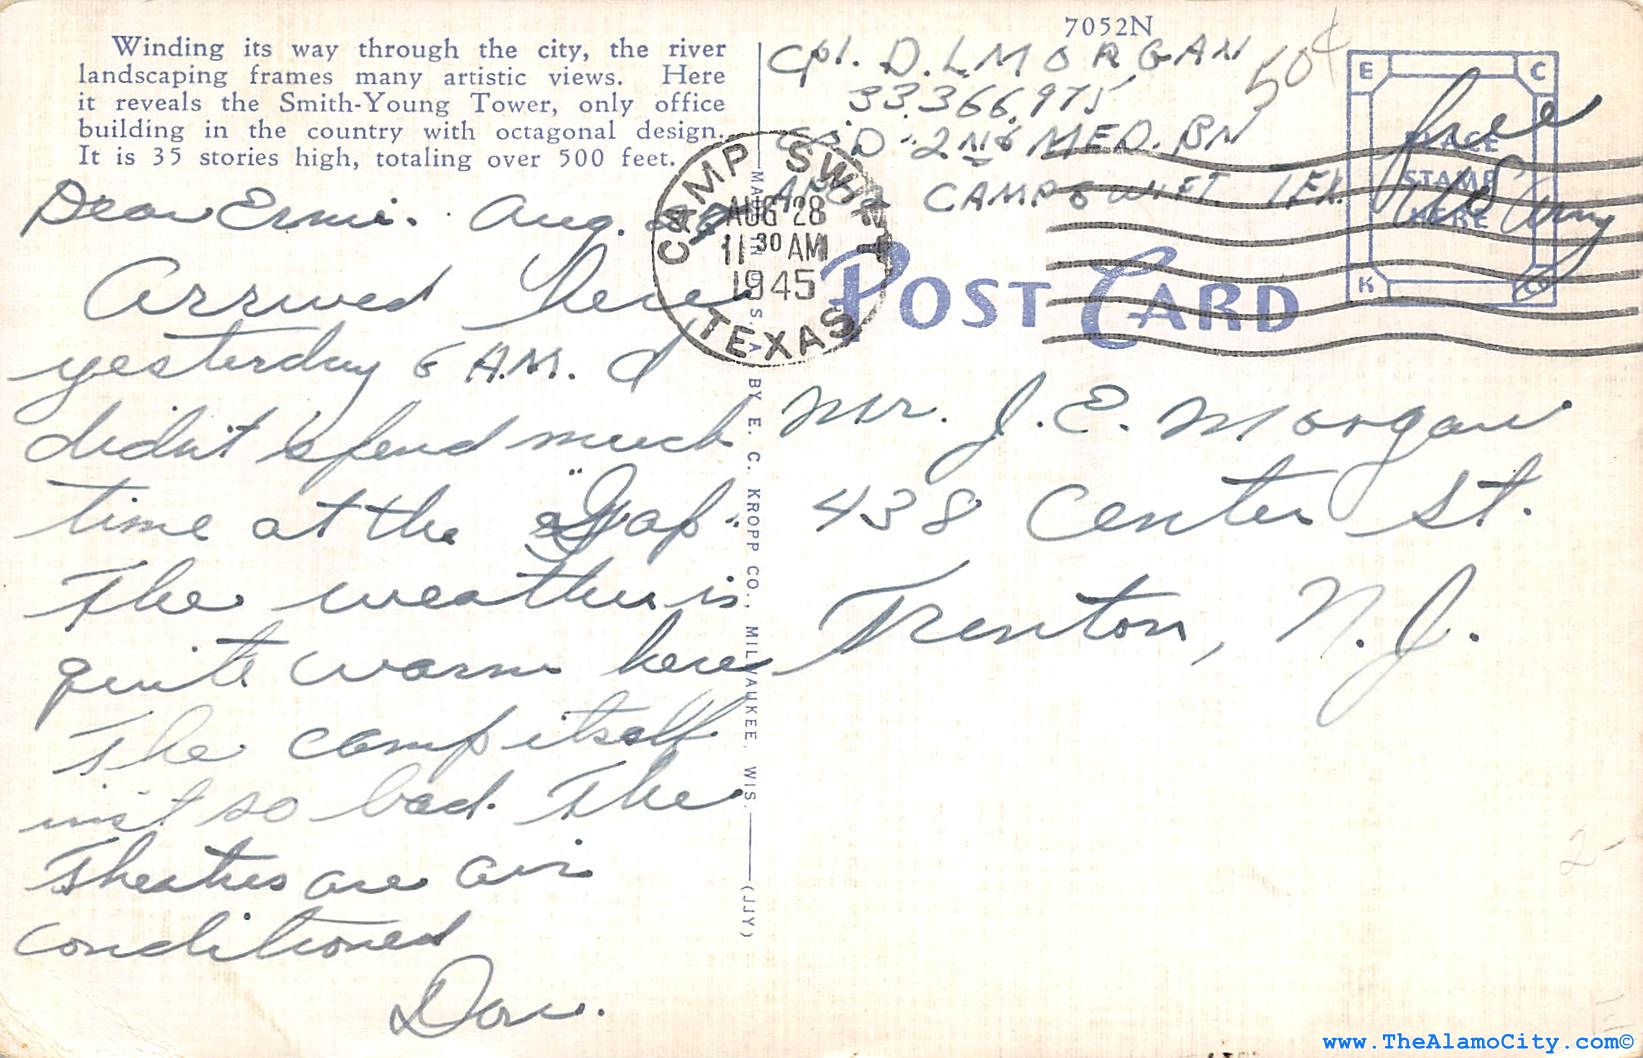 7052N
Winding its way through the city, the river
landscaping frames many artistic views. Here
it reveals the Smith-Young Tower, only office
building in the country with octagonal design.
It is 35 stories high, totaling over 500 feet.
Cpl. D. L MORGAN
33366975
CO. D. 2ND MED. BN
CAMP SWIFT TEX.
50¢
free
US Army
E C
PLACE
STAMP
HERE
K Co
CAMP SWIFT
AUG 28
11 30 AM
1945
TEXAS
POST CARD
Dear Ernie. Aug.
Arrived here
yesterday 6 A.M. I
didn't spend much
time at the "Gap"
The weather is
quite warm here
The camp itself
isn't so bad. The
Theatres are air
conditioned
Don.
Mr. J. E. Morgan
438 Center St.
Trenton, N. J.
MADE IN U.S.A. BY E. C. KROPP CO., MILWAUKEE, WIS.
(JJY)
2-
www.TheAlamoCity.com©